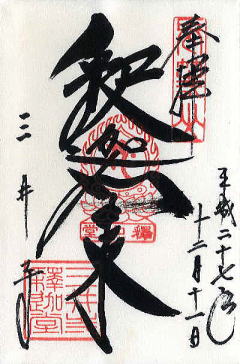 奉拝
平成二十七年
十二月十一日
釈迦如来
三井寺
三井寺
釋迦堂